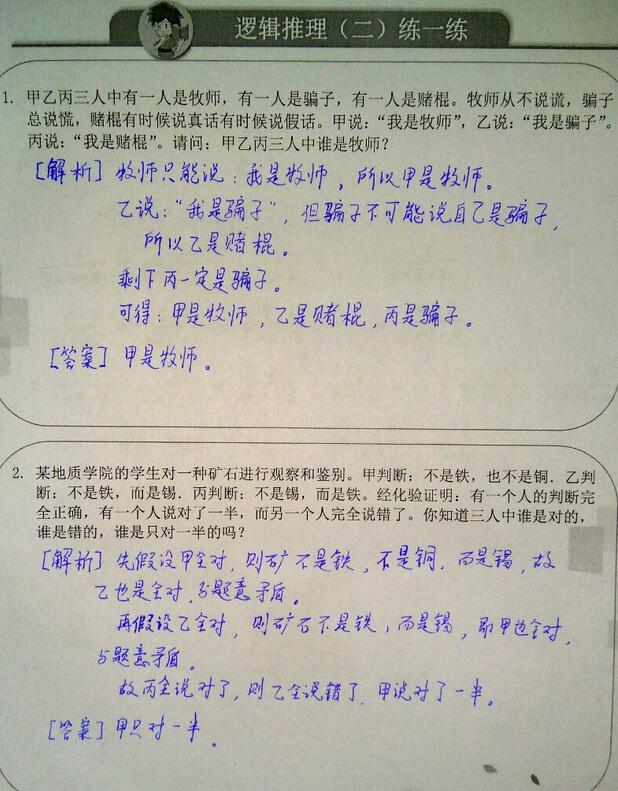 逻辑推理（二）练一练
1. 甲乙丙三人中有一人是牧师，有一人是骗子，有一人是赌棍。牧师从不说谎，骗子
总说谎，赌棍有时候说真话有时候说假话。甲说：“我是牧师”，乙说：“我是骗子”。
丙说：“我是赌棍”。请问：甲乙丙三人中谁是牧师？
[解析] 牧师只能说：我是牧师，所以甲是牧师。
乙说：“我是骗子”，但骗子不可能说自己是骗子，
所以乙是赌棍。
剩下丙一定是骗子。
可得：甲是牧师，乙是赌棍，丙是骗子。
[答案] 甲是牧师。
2. 某地质学院的学生对一种矿石进行观察和鉴别。甲判断：不是铁，也不是铜．乙判
断：不是铁，而是锡．丙判断：不是锡，而是铁。经化验证明：有一个人的判断完
全正确，有一个人说对了一半，而另一个人完全说错了。你知道三人中谁是对的，
谁是错的，谁是只对一半的吗？
[解析] 先假设甲全对，则矿不是铁，不是铜，而是锡，故
乙也是全对，与题意矛盾。
再假设乙全对，则矿石不是铁，而是锡，即甲也全对，
与题意矛盾。
故丙全说对了，则乙全说错了，甲说对了一半。
[答案] 甲只对一半。